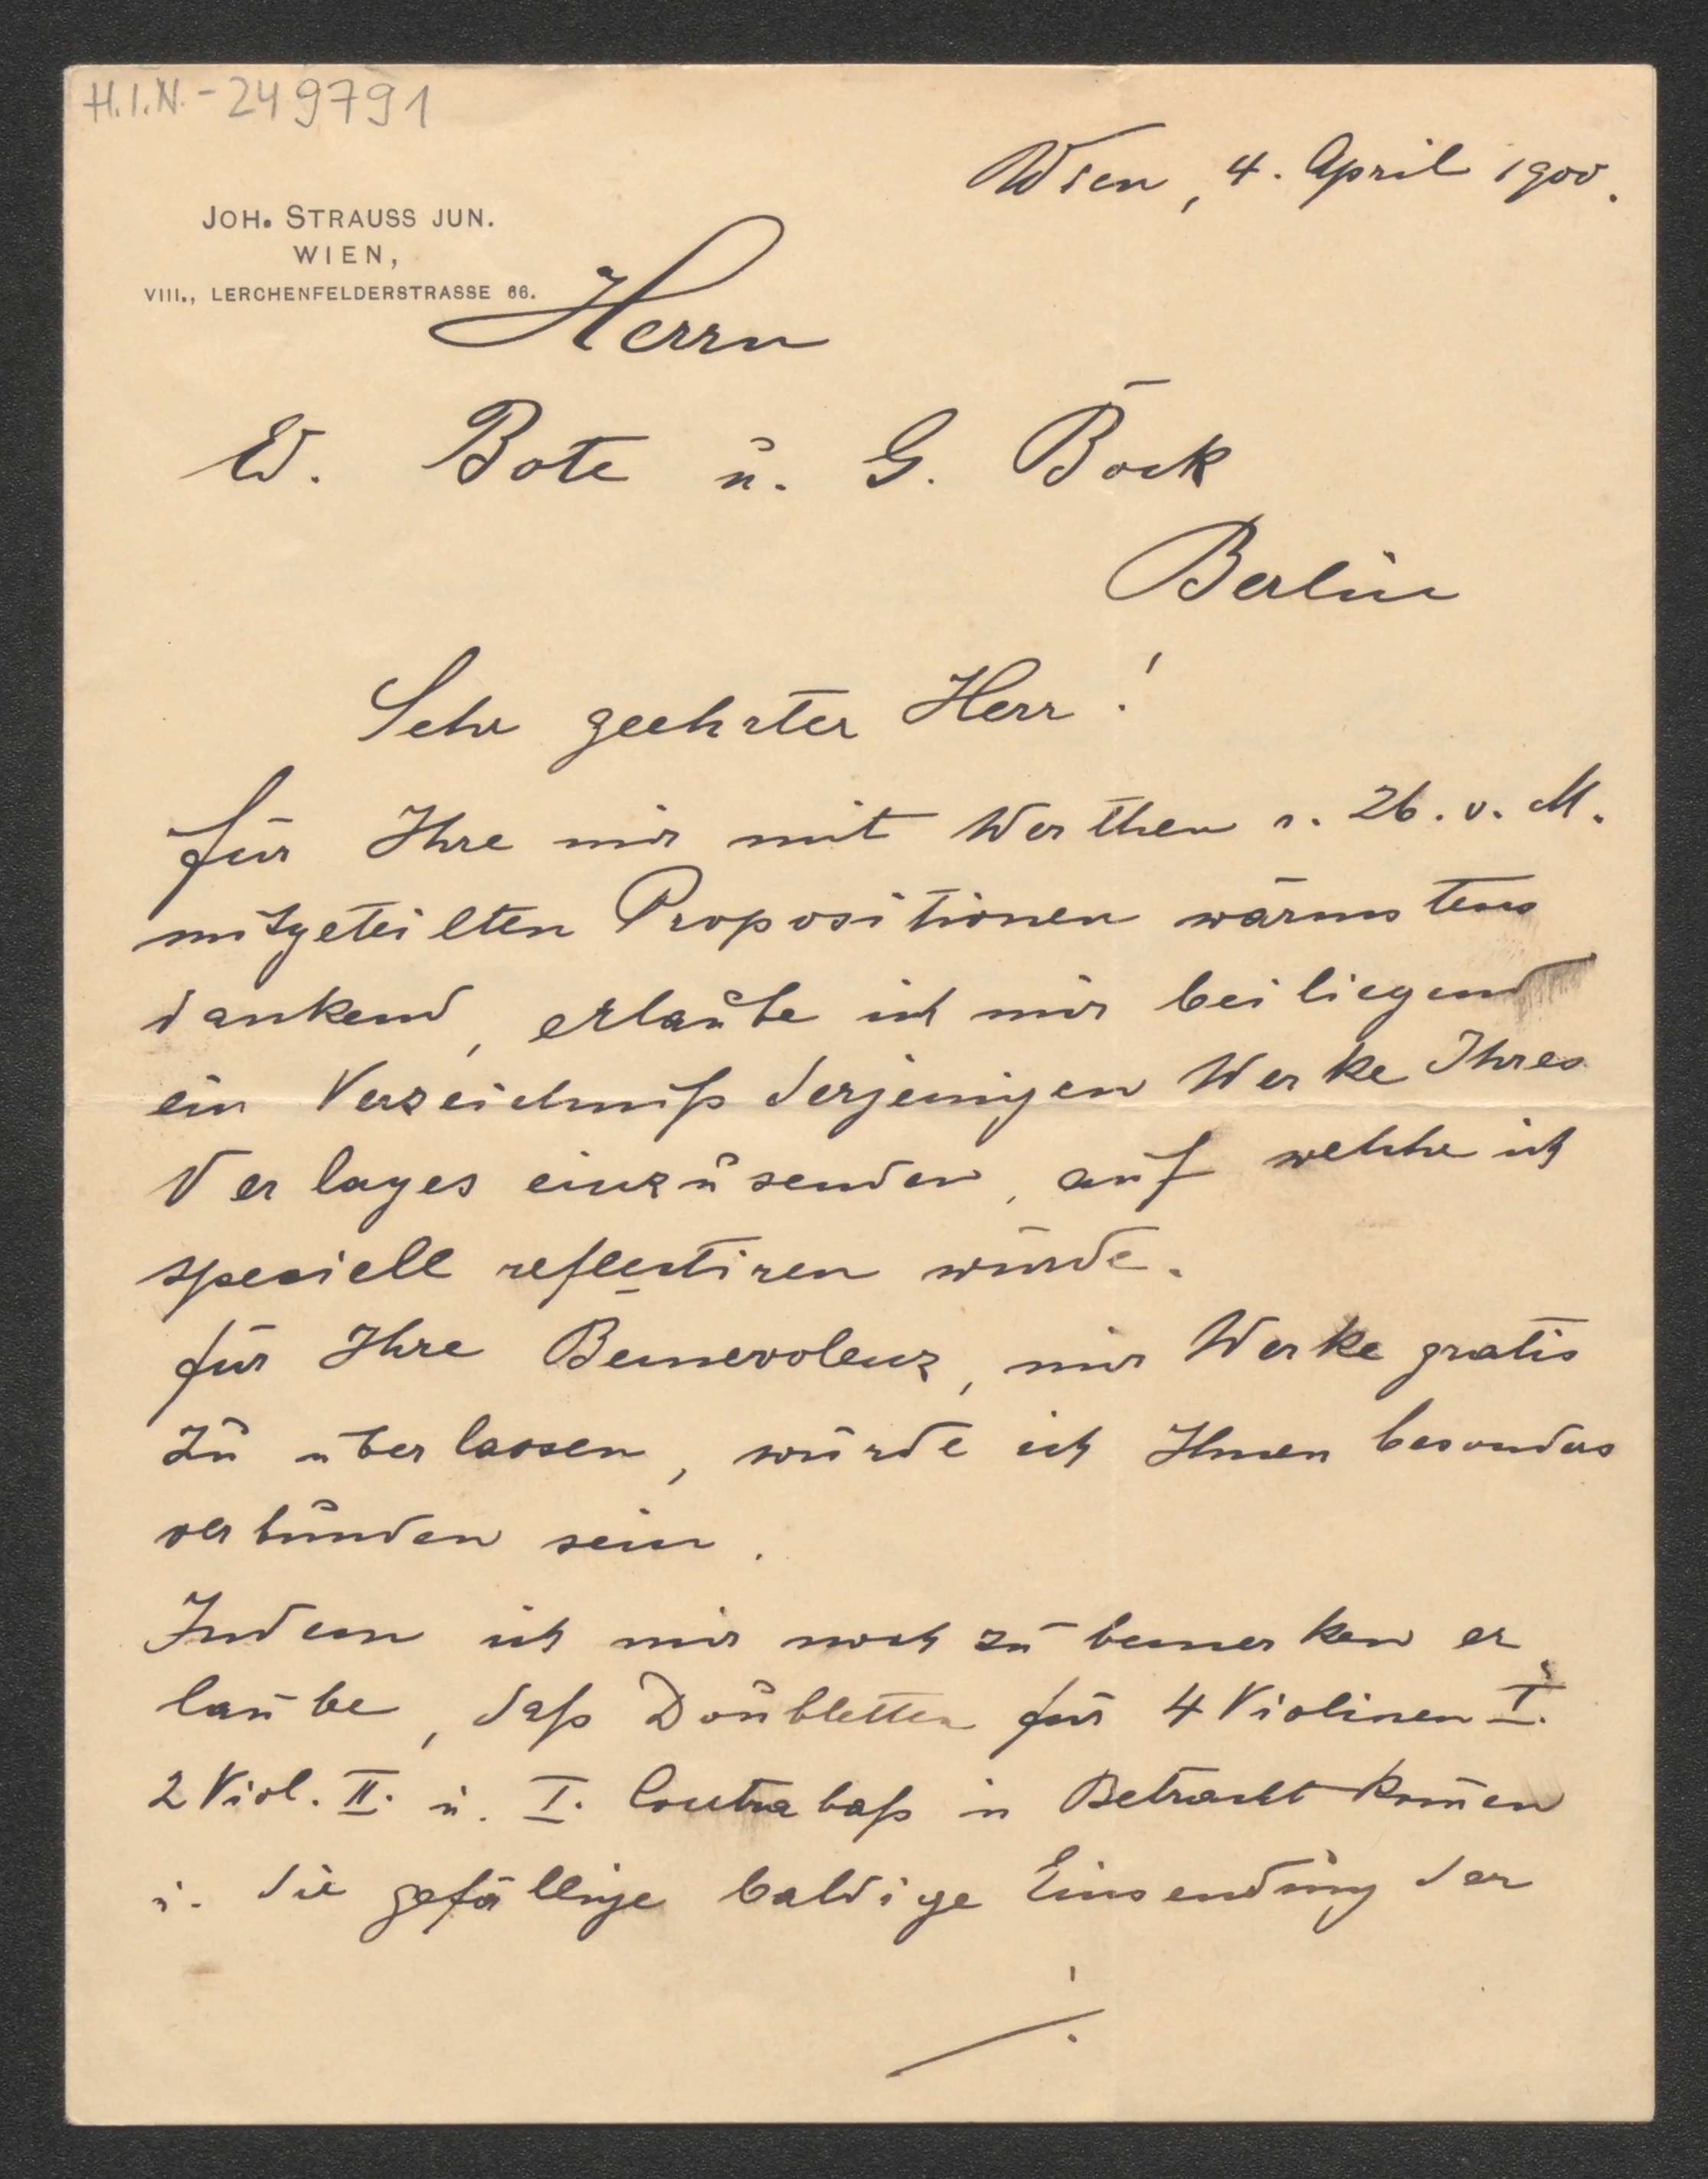 H.I.N.-249791
Wien, 4. April 1900.
JOH. STRAUSS JUN.
WIEN,
VIII., LERCHENFELDERSTRASSE 66.
Herrn
Ed. Bote u. G. Bock
Berlin
Sehr geehrter Herr!
für Ihre mir mit Werthen v. 26. v. M.
mitgeteilten Propositionen wärmstens
dankend, erlaube ich mir beiliegend
ein Verzeichniß derjenigen Werke Ihres
Verlages einzusenden, auf welche ich
speciell reflectiren würde.
für Ihre Benevolenz, mir Werke gratis
zu überlassen, würde ich Ihnen besonders
verbunden sein.
Indem ich mir noch zu bemerken er
laube, daß Doubletten für 4 Violinen I.
2 Viol. II. u. I. Contrabaß in Betracht kom̅en
u. die gefällige baldige Einsendung der
./.